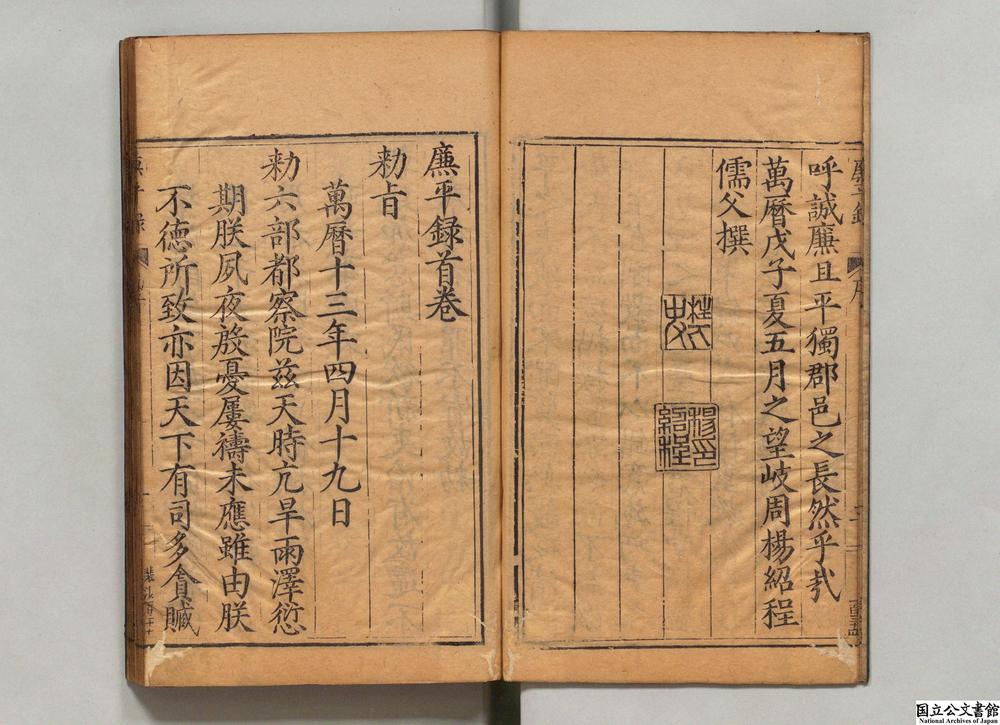 呼誠廉且平獨郡邑之長然乎㢤
萬曆戊子夏五月之望岐周楊紹程
儒父撰
楊印紹程
廉平録首卷
勅旨
萬曆十三年四月十九日
勅六部都察院兹天時亢旱雨澤愆
期朕夙夜殷憂屢禱未應雖由朕
不徳所致亦因天下有司多貪贓
国立公文書館
National Archives of Japan